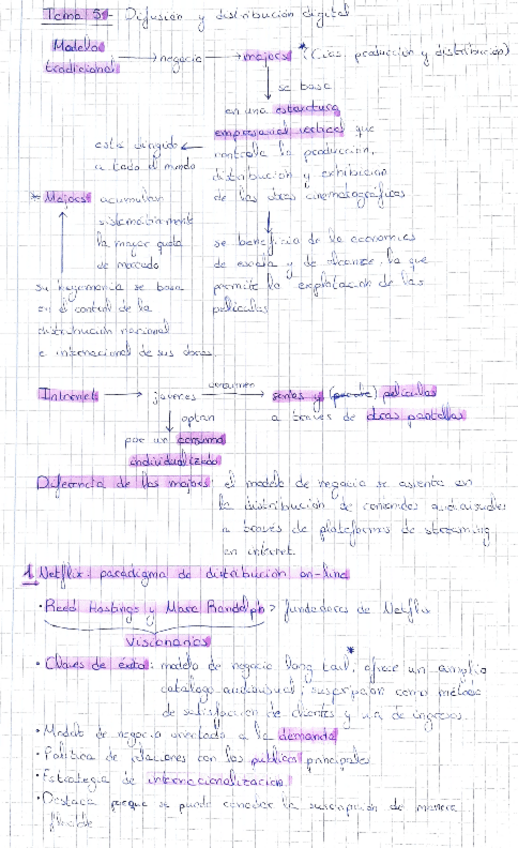 Tema 5- Difusión y distribución digital
Modelo tradicional → negocio → majors* (Cías. producción y distribución)
↓ se basa
en una estructura
empresarial vertical que
controla la producción,
distribución y exhibición
de las obras cinematográficas
está dirigido ←
a todo el mundo
se beneficia de la economías
de escala y de alcance, lo que
permite la explotación de las
películas
* Majors acumulan
sistemáticamente
la mayor cuota
de mercado
su hegemonía se basa
en el control de la
distribución nacional
e internacional de sus obras.
Internet → jóvenes consumen → series y películas
a través de otras pantallas
↓ optan
por un consumo
individualizado
Diferencia de las majors: el modelo de negocio se asienta en
la distribución de contenidos audiovisuales
a través de plataformas de streaming
en internet.
1. Netflix: paradigma de distribución on-line
• Reed Hastings y Marc Randolph > fundadores de Netflix
visionarios
• Claves de éxito: modelo de negocio long tail*, ofrece un amplio
catálogo audiovisual, suscripción como método
de satisfacción de clientes y vía de ingresos.
• Modelo de negocio orientado a la demanda
• Política de relaciones con los públicos principales.
• Estrategia de internacionalización
• Destaca porque se puede cancelar la suscripción de manera
flexible